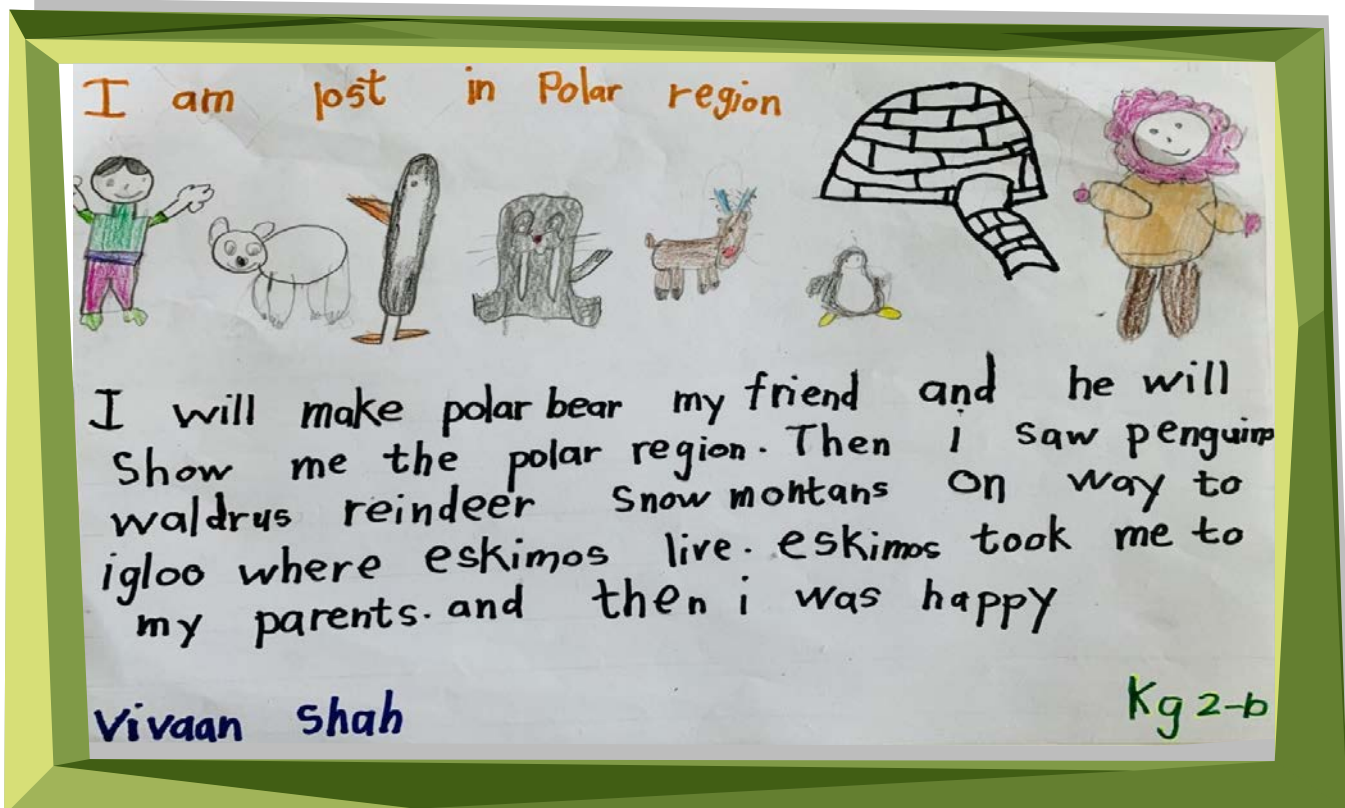 I am lost in Polar region
I will make polar bear my friend and he will
Show me the polar region. Then i saw penguin
waldrus reindeer snow mohtans on way to
igloo where eskimos live. eskimos took me to
my parents. and then i was happy
Vivaan Shah
Kg 2-b